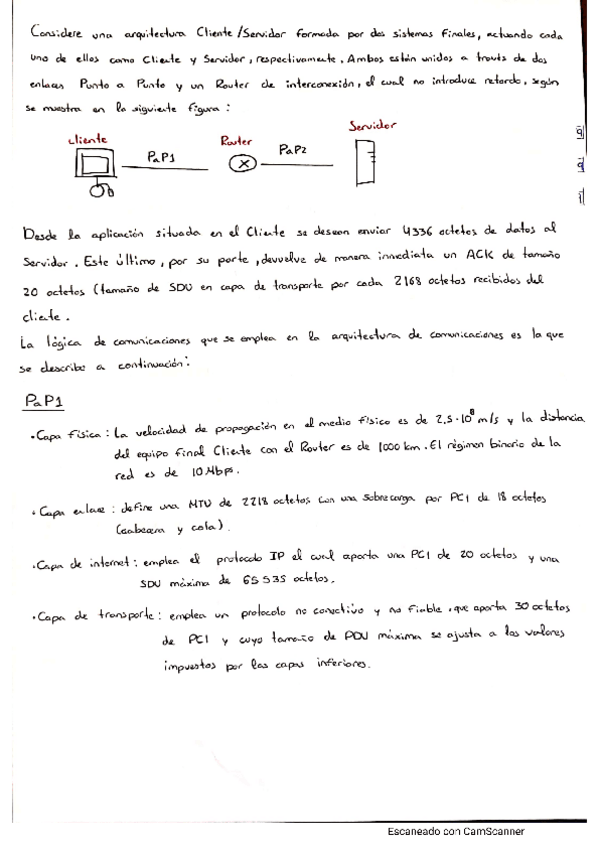 Considere una arquitectura Cliente/Servidor formada por dos sistemas finales, actuando cada
uno de ellos como Cliente y Servidor, respectivamente. Ambos están unidos a través de dos
enlaces Punto a Punto y un Router de interconexión, el cual no introduce retardo, según
se muestra en la siguiente figura:
Servidor
cliente
Router
PaP1
PaP2
Desde la aplicación situada en el Cliente se desean enviar 4336 octetos de datos al
Servidor. Este último, por su parte, devuelve de manera inmediata un ACK de tamaño
20 octetos (tamaño de SDU en capa de transporte por cada 2168 octetos recibidos del
cliente.
La lógica de comunicaciones que se emplea en la arquitectura de comunicaciones es la que
se describe a continuación:
PaP1
• Capa física: La velocidad de propagación en el medio físico es de 2.5·10⁸ m/s y la distancia
del equipo final Cliente con el Router es de 1000 km. El régimen binario de la
red es de 10Mbps.
• Capa enlace: define una MTU de 2218 octetos con una sobrecarga por PCI de 18 octetos
(cabecera y cola).
• Capa de internet: emplea el protocolo IP el cual aporta una PCI de 20 octetos y una
SDU máxima de 65535 octetos.
• Capa de transporte: emplea un protocolo no conectivo y no fiable, que aporta 30 octetos
de PCI y cuyo tamaño de PDU máxima se ajusta a los valores
impuestos por las capas inferiores.
Escaneado con CamScanner